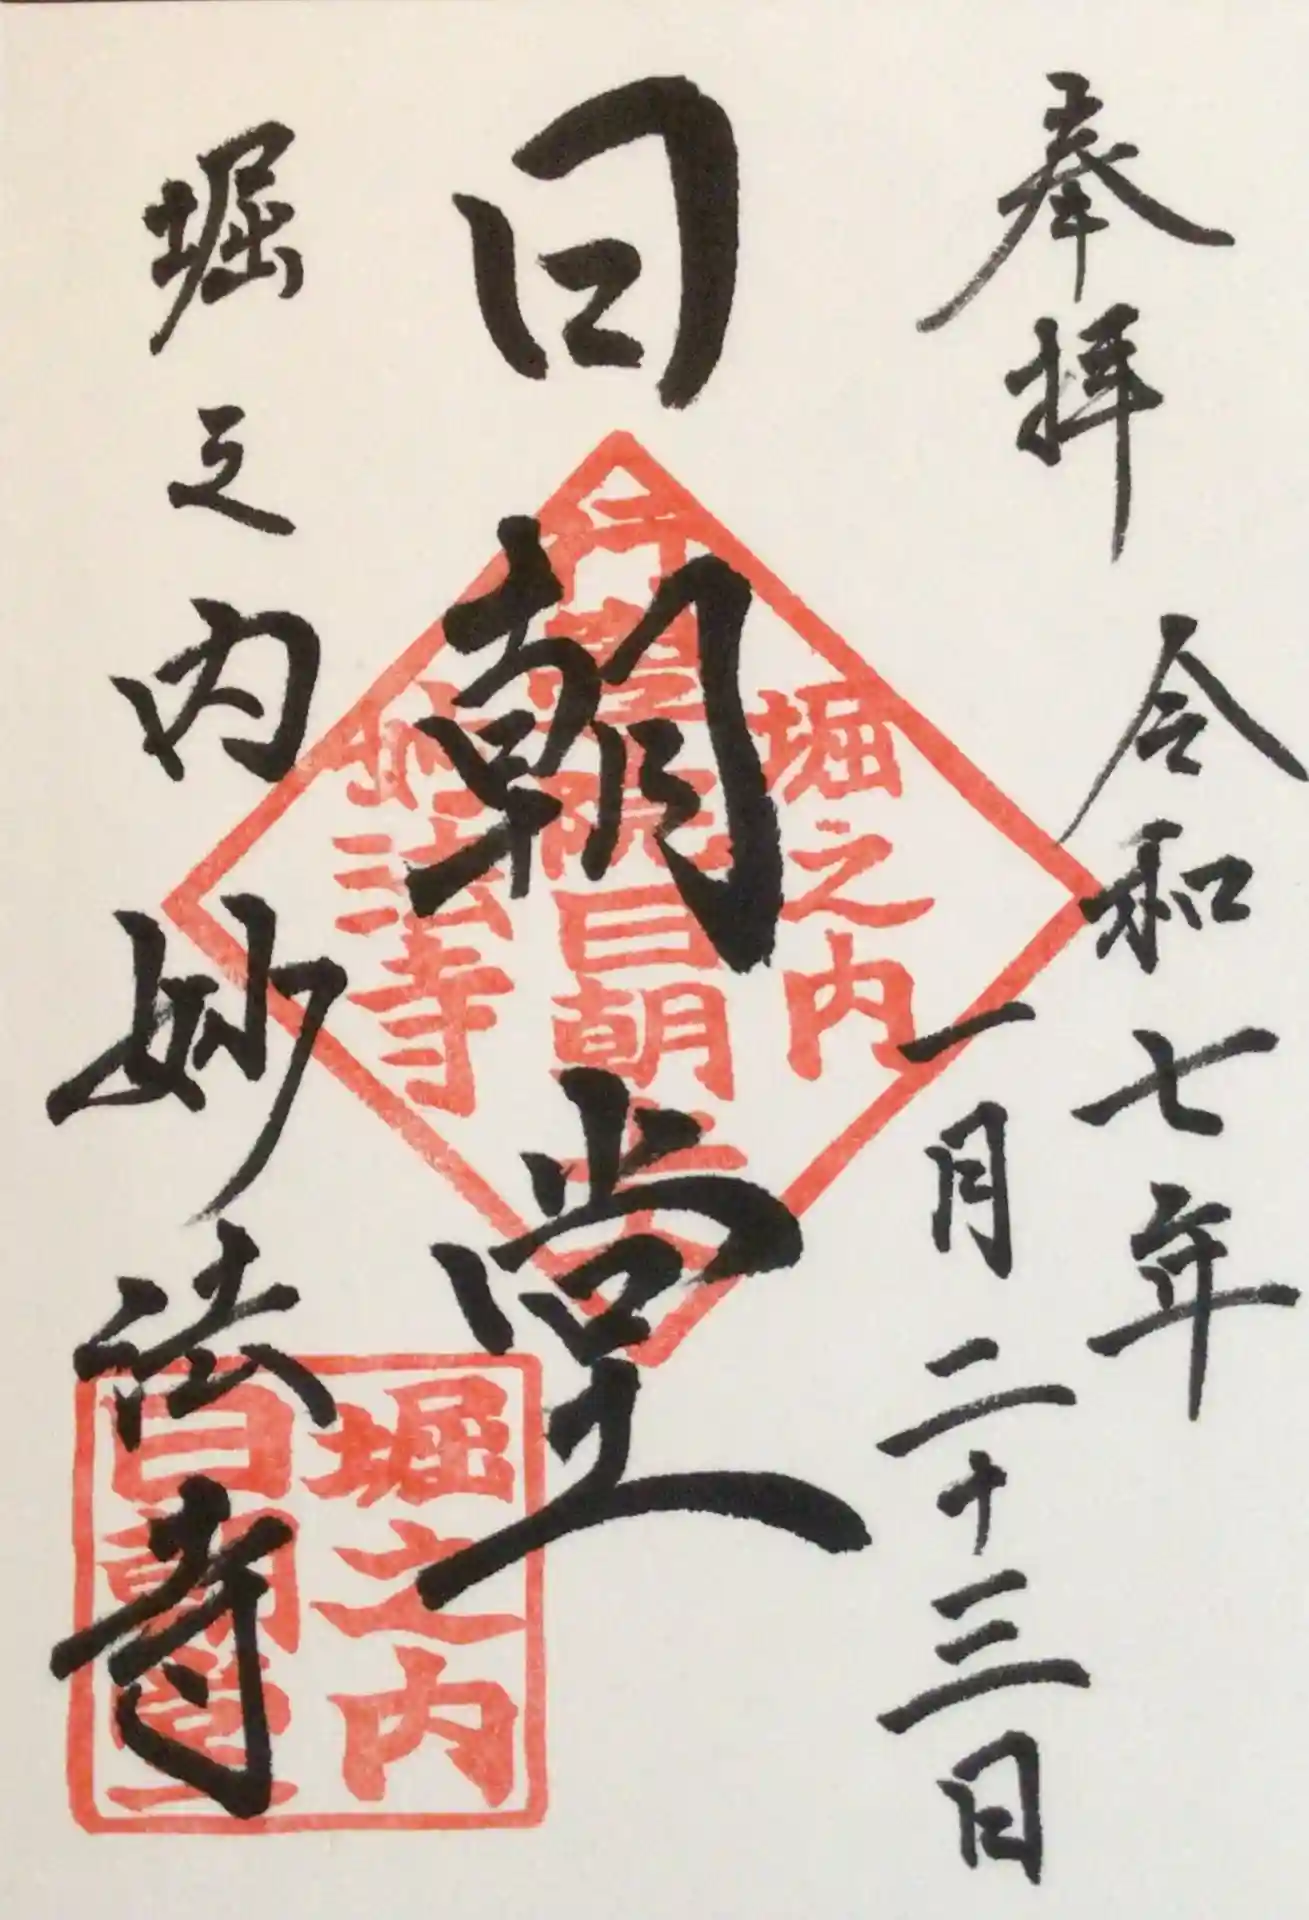 奉拝
令和七年
一月二十三日
日朝堂
堀之内妙法寺
堀之内
日朝堂
妙法寺
堀之内
日朝堂